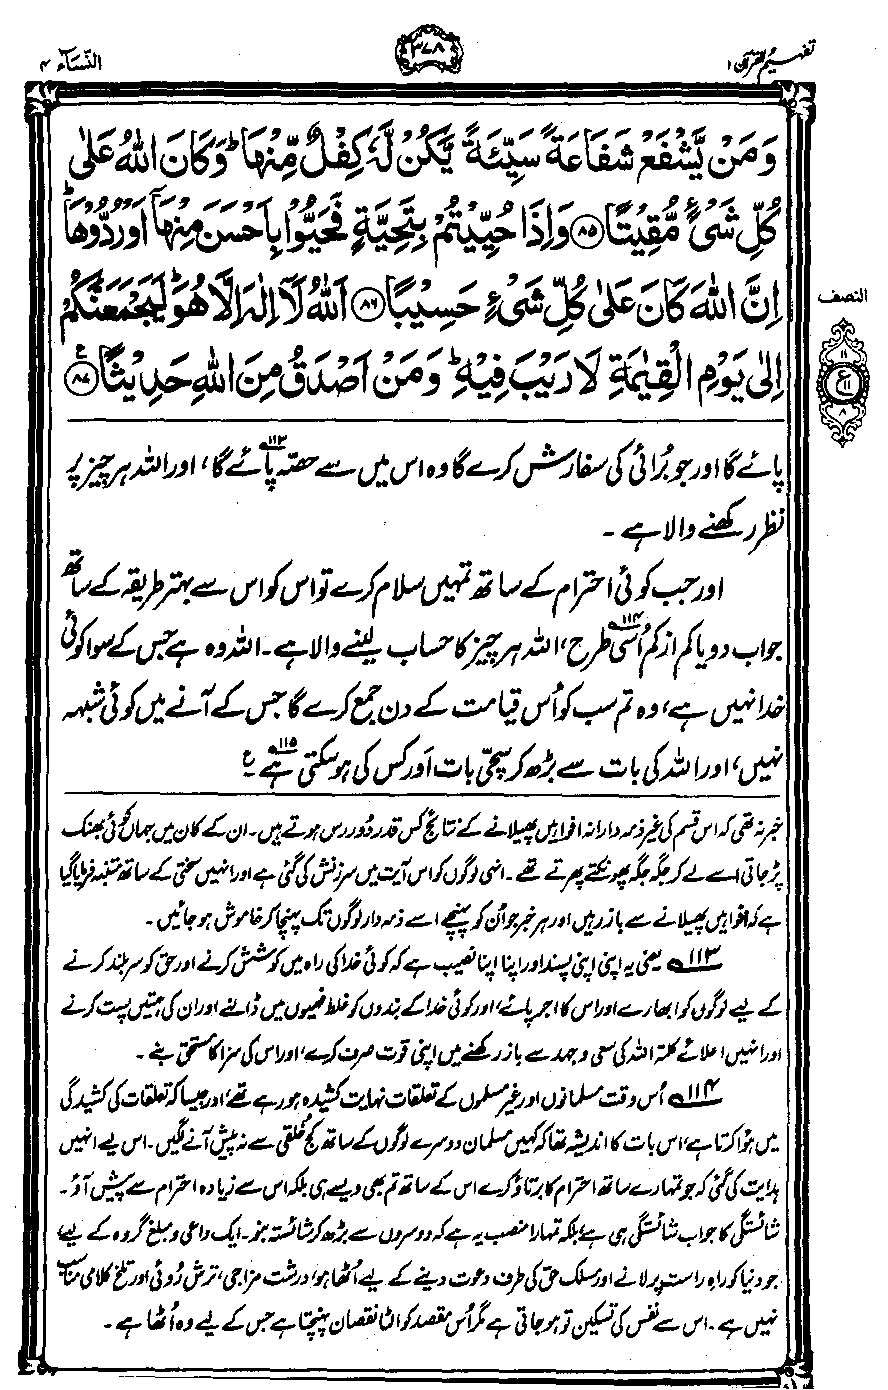 تفہیم القرآن ۱
۳۷۸
النّسَآء ۴
وَمَنۡ يَّشۡفَعۡ شَفَاعَةً سَيِّئَةً يَّكُنۡ لَّهٗ كِفۡلٌ مِّنۡهَا ؕ وَكَانَ اللّٰهُ عَلٰى
كُلِّ شَىۡءٍ مُّقِيۡتًا ﴿۸۵﴾ وَاِذَا حُيِّيۡتُمۡ بِتَحِيَّةٍ فَحَيُّوۡا بِاَحۡسَنَ مِنۡهَاۤ اَوۡ رُدُّوۡهَا ؕ
اِنَّ اللّٰهَ كَانَ عَلٰى كُلِّ شَىۡءٍ حَسِيۡبًا ﴿۸۶﴾ اَللّٰهُ لَاۤ اِلٰهَ اِلَّا هُوَ ؕ لَيَجۡمَعَنَّكُمۡ
اِلٰى يَوۡمِ الۡقِيٰمَةِ لَا رَيۡبَ فِيۡهِ ؕ وَمَنۡ اَصۡدَقُ مِنَ اللّٰهِ حَدِيۡثًا ﴿۸۷﴾
النصف
۱۱
ع ۱۱
۸
پائے گا اور جو بُرائی کی سفارش کرے گا وہ اس میں سے حصّہ پائے گا،۱۱۳ اور اللہ ہر چیز پر
نظر رکھنے والا ہے۔
اور جب کوئی احترام کے ساتھ تمہیں سلام کرے تو اس کو اس سے بہتر طریقہ کے ساتھ
جواب دو یا کم از کم اُسی طرح،۱۱۴ اللہ ہر چیز کا حساب لینے والا ہے۔ اللہ وہ ہے جس کے سوا کوئی
خدا نہیں ہے، وہ تم سب کو اُس قیامت کے دن جمع کرے گا جس کے آنے میں کوئی شبہہ
نہیں، اور اللہ کی بات سے بڑھ کر سچّی بات اَور کس کی ہوسکتی ہے۱۱۵ ع
خبر نہ تھی کہ اس قسم کی غیر ذمہ دارانہ افواہیں پھیلانے کے نتائج کس قدر دُور رس ہوتے ہیں۔ ان کے کان میں جہاں کوئی بھنک
پڑ جاتی اسے لے کر جگہ جگہ پھونکتے پھرتے تھے۔ انہی لوگوں کو اس آیت میں سرزنش کی گئی ہے اور انہیں سختی کے ساتھ متنبہ فرمایا گیا
ہے کہ افواہیں پھیلانے سے باز رہیں اور ہر خبر جو ان کو پہنچے اسے ذمہ دار لوگوں تک پہنچا کر خاموش ہو جائیں۔
۱۱۳ یعنی یہ اپنی اپنی پسند اور اپنا اپنا نصیب ہے کہ کوئی خدا کی راہ میں کوشش کرنے اور حق کو سربلند کرنے
کے لیے لوگوں کو ابھارے اور اس کا اجر پائے، اور کوئی خدا کے بندوں کو غلط فہمیوں میں ڈالنے اور ان کی ہمتیں پست کرنے
اور انہیں اعلائے کلمۃ اللہ کی سعی و جہد سے باز رکھنے میں اپنی قوت صرف کرے، اور اس کی سزا کا مستحق بنے۔
۱۱۴ اُس وقت مسلمانوں اور غیر مسلموں کے تعلقات نہایت کشیدہ ہو رہے تھے، اور جیسا کہ تعلقات کی کشیدگی
میں ہوا کرتا ہے، اس بات کا اندیشہ تھا کہ کہیں مسلمان دوسرے لوگوں کے ساتھ کج خُلقی سے نہ پیش آنے لگیں۔ اس لیے انہیں
ہدایت کی گئی کہ جو تمہارے ساتھ احترام کا برتاؤ کرے اس کے ساتھ تم بھی ویسے ہی بلکہ اس سے زیادہ احترام سے پیش آؤ۔
شائستگی کا جواب شائستگی ہی ہے، بلکہ تمہارا منصب یہ ہے کہ دوسروں سے بڑھ کر شائستہ بنو۔ ایک داعی و مبلغ گروہ کے لیے،
جو دنیا کو راہِ راست پر لانے اور مسلک حق کی طرف دعوت دینے کے لیے اُٹھا ہو، درشت مزاجی، ترش رُوئی اور تلخ کلامی مناسب
نہیں ہے۔ اس سے نفس کی تسکین تو ہو جاتی ہے مگر اُس مقصد کو الٹا نقصان پہنچتا ہے جس کے لیے وہ اُٹھا ہے۔